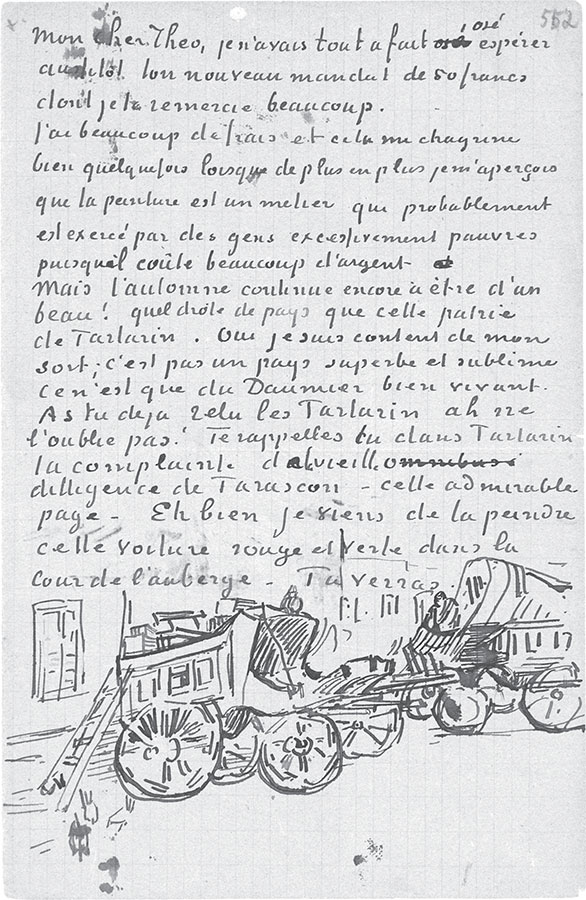 552
Mon cher Theo, je n'avais tout a fait osé espérer
aussitôt ton nouveau mandat de 50 francs
dont je te remercie beaucoup.
J'ai beaucoup de frais et cela me chagrine
bien quelquefois lorsque de plus en plus je m'aperçois
que la peinture est un metier qui probablement
est exercé par des gens excessivement pauvres
puisqu'il coûte beaucoup d'argent
Mais l'automne continue encore à être d'un
beau! quel drole de pays que cette patrie
de Tartarin. Oui je suis content de mon
sort; c'est pas un pays superbe et sublime
ce n'est que du Daumier bien vivant.
As tu deja relu les Tartarin ah ne
l'oublie pas! Te rappelles tu dans Tartarin
la complainte de la vieille omnibus
dilligence de Tarascon – cette admirable
page – Eh bien je viens de la peindre
cette voiture rouge et verte dans la
cour de l'auberge – Tu verras.